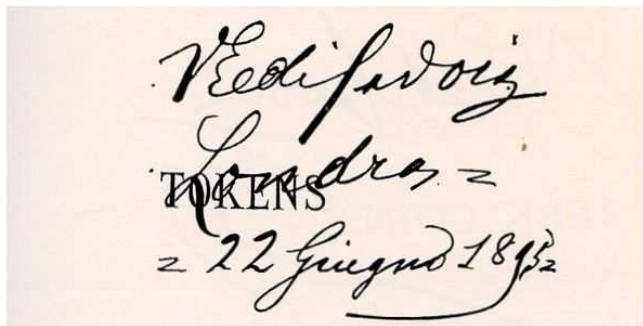 VE di Savoia
Londra =
TOKENS
= 22 Giugno 1895=